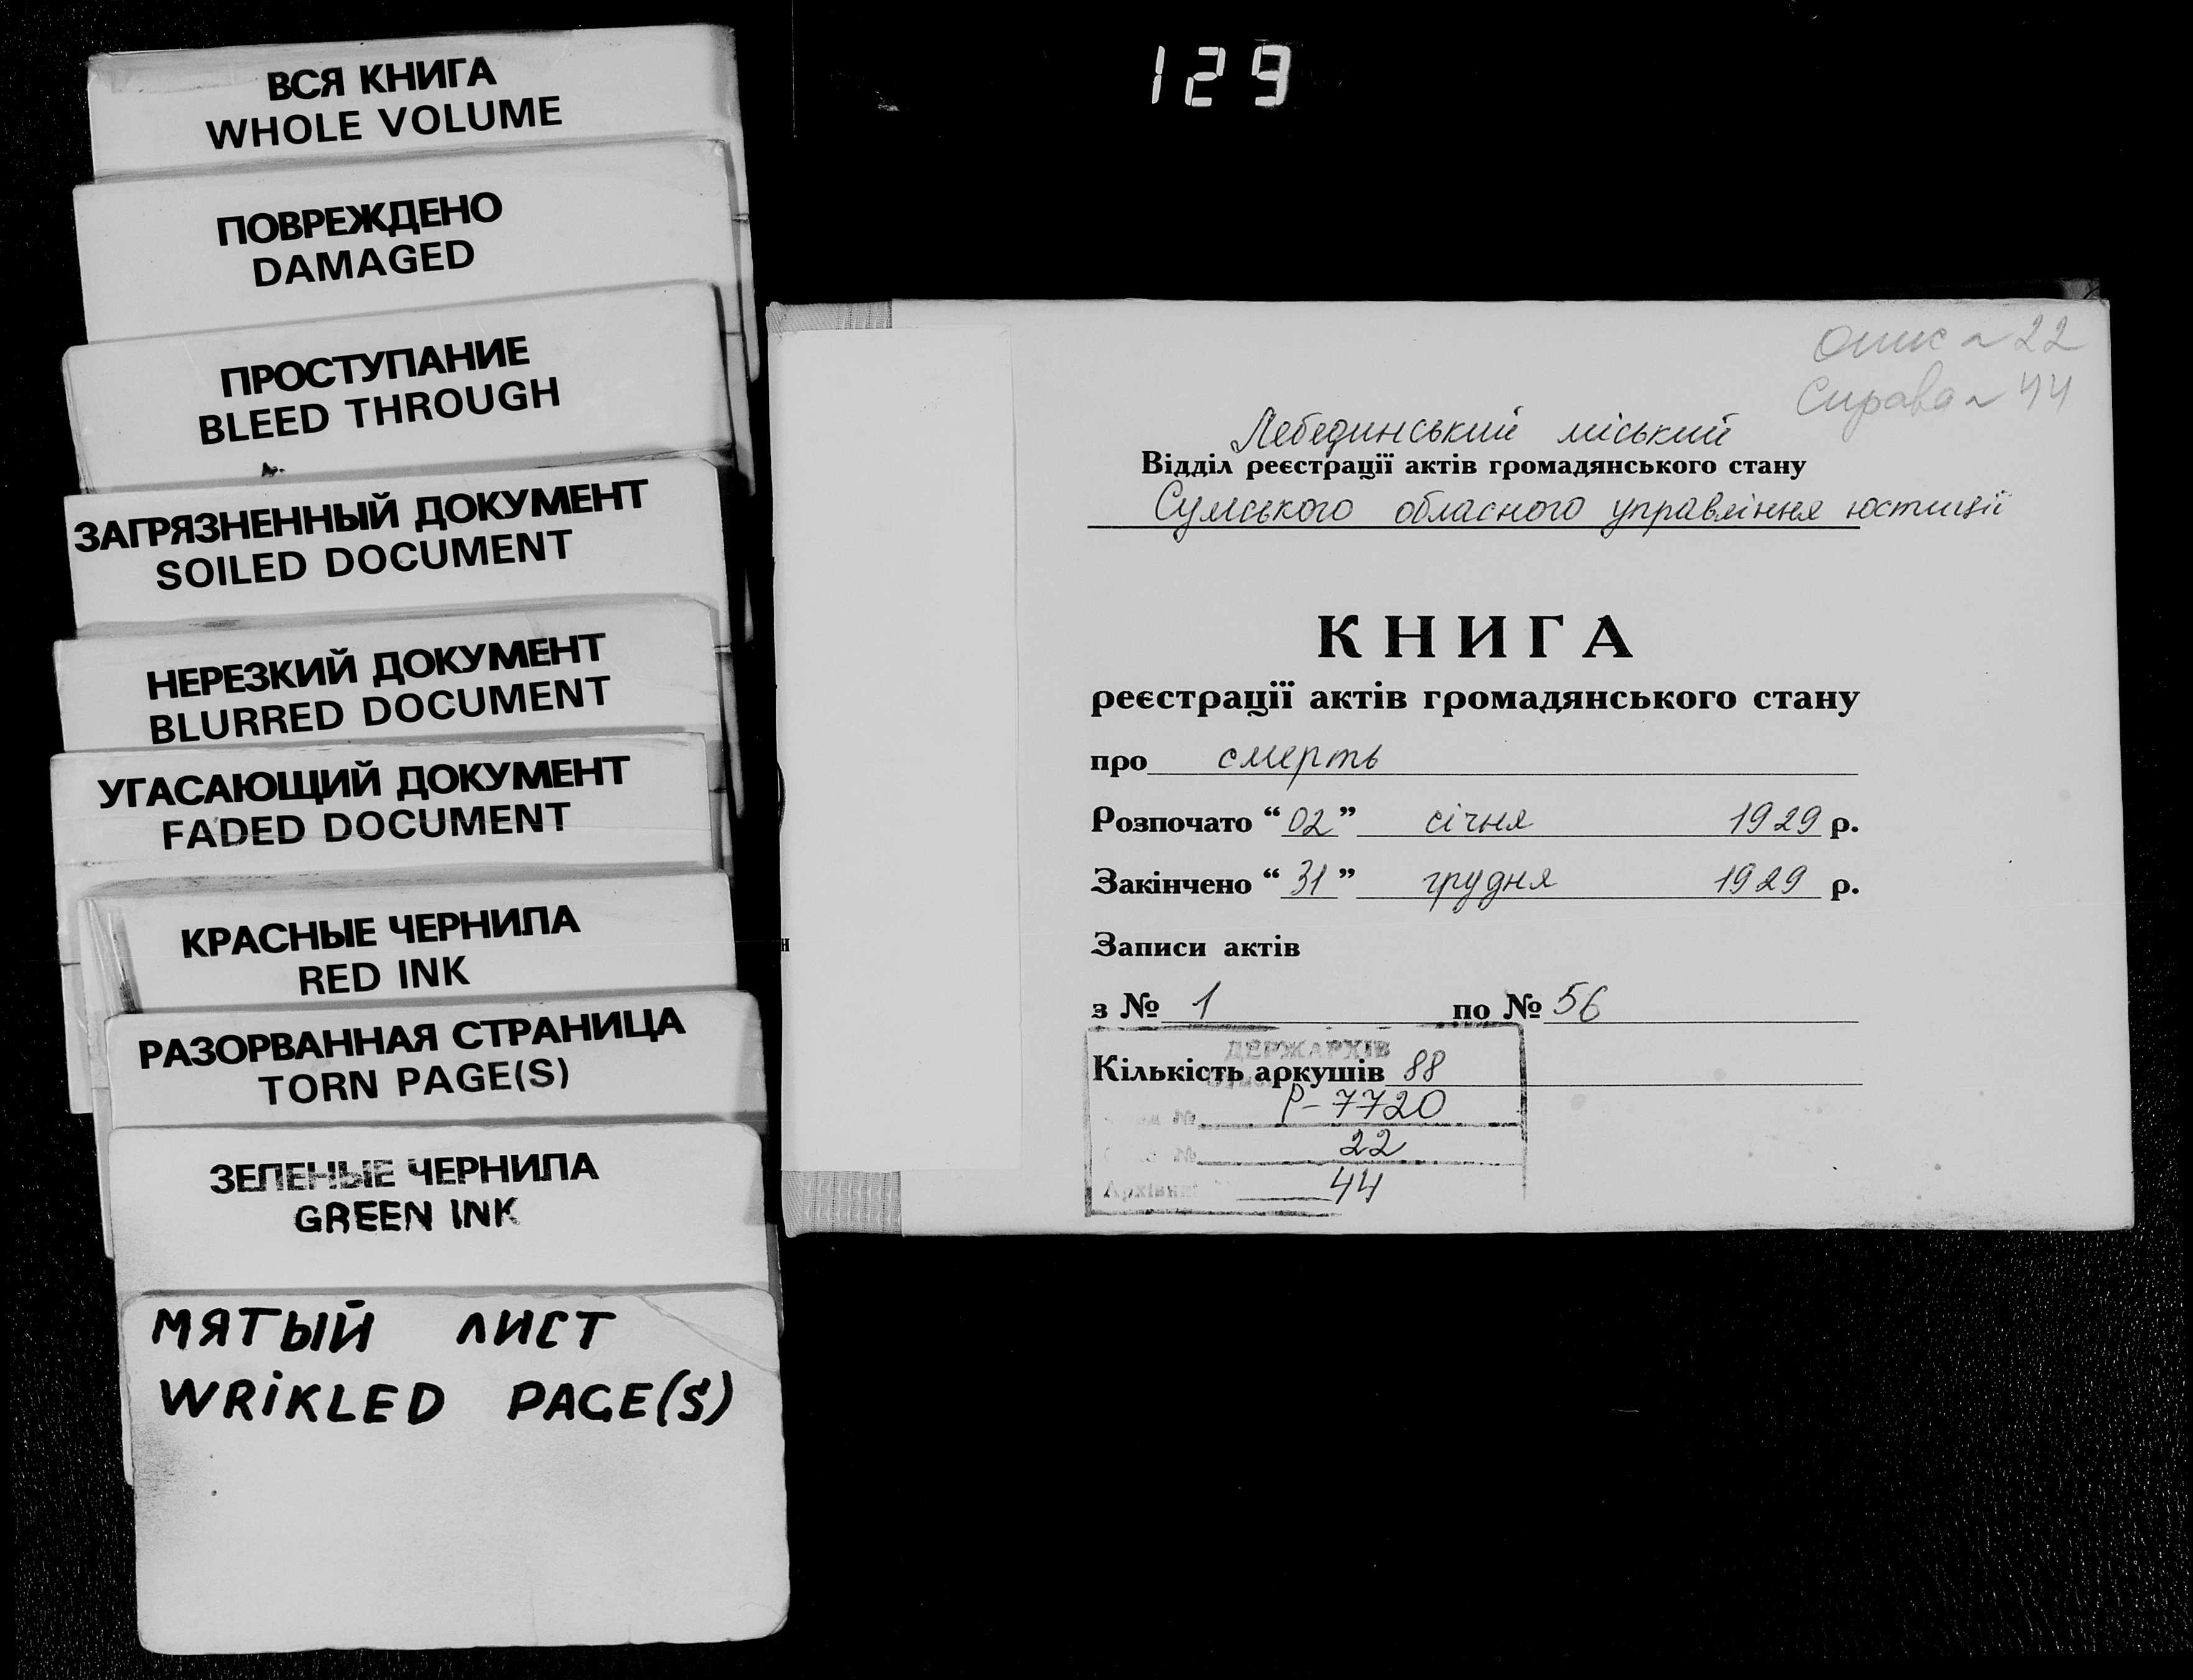 129
ВСЯ КНИГА
WHOLE VOLUME
ПОВРЕЖДЕНО
DAMAGED
ПРОСТУПАНИЕ
BLEED THROUGH
ЗАГРЯЗНЕННЫЙ ДОКУМЕНТ
SOILED DOCUMENT
НЕРЕЗКИЙ ДОКУМЕНТ
BLURRED DOCUMENT
УГАСАЮЩИЙ ДОКУМЕНТ
FADED DOCUMENT
КРАСНЫЕ ЧЕРНИЛА
RED INK
РАЗОРВАННАЯ СТРАНИЦА
TORN PAGE(S)
ЗЕЛЕНЫЕ ЧЕРНИЛА
GREEN INK
МЯТЫЙ ЛИСТ
WRiKLED PAGE(S)
Опис ~ 22
Справа ~ 44
Лебединський міський
Відділ реєстрації актів громадянського стану
Сумського обласного управління юстиції
КНИГА
реєстрації актів громадянського стану
про смерть
Розпочато “02” січня 1929 р.
Закінчено “31” грудня 1929 р.
Записи актів
з № 1 по № 56
ДЕРЖАРХІВ
Кількість аркушів 88
№ Р-7720
№ 22
44